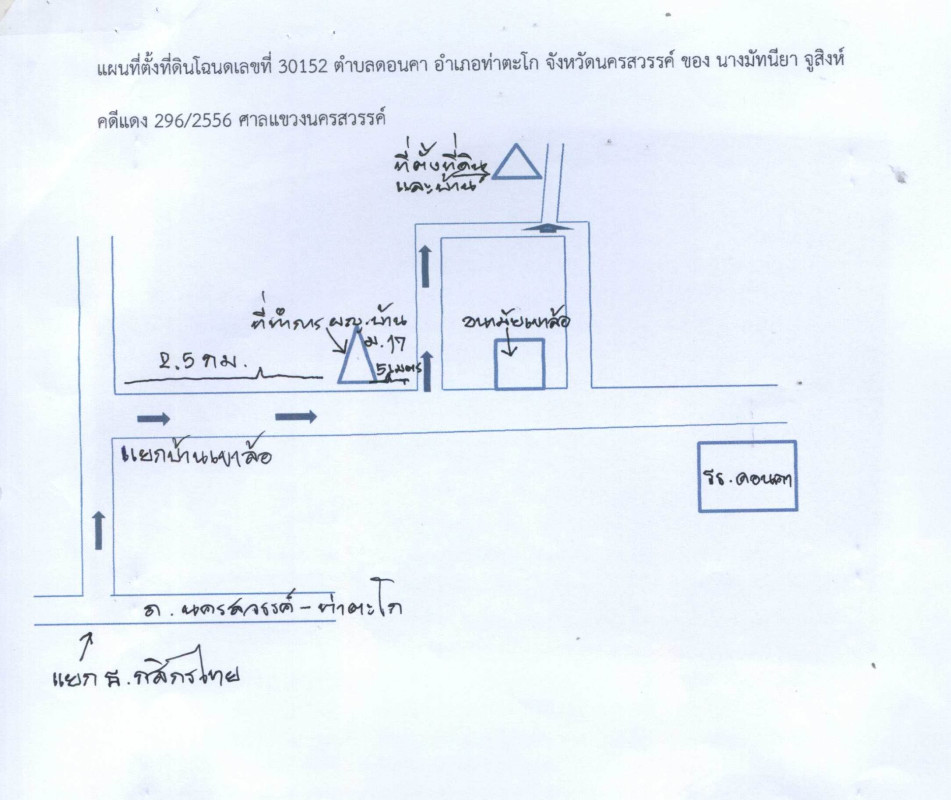 แผนที่ตั้งที่ดินโฉนดเลขที่ 30152 ตำบลดอนคา อำเภอท่าตะโก จังหวัดนครสวรรค์ ของ นางมัทนียา จูสิงห์
คดีแดง 296/2556 ศาลแขวงนครสวรรค์
ที่ตั้งที่ดิน
และบ้าน
ที่ทำการ ผญ.บ้าน
ม.17
อนามัยเขาล้อ
2.5 กม.
5 เมตร
แยกบ้านเขาล้อ
รร.ดอนคา
ถ. นครสวรรค์ - ท่าตะโก
แยก ธ. กสิกรไทย